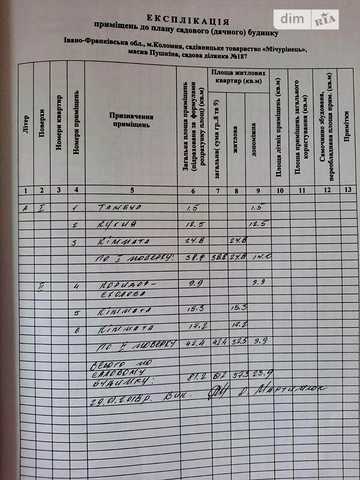 dim RIA
ЕКСПЛІКАЦІЯ
приміщень до плану садового (дачного) будинку
Івано-Франківська обл., м.Коломия, садівницьке товариство «Мічурінець»,
масив Пушкіна, садова ділянка №187
Літер
Поверхи
Номери квартир
Номери приміщень
Призначення приміщень
Загальна площа приміщень (підрахована за формулами розрахунку площ) (кв.м)
Площа житлових квартир (кв.м)
загальна( сума гр.8 та 9)
житлова
допоміжна
Площа літніх приміщень (кв.м)
Площа приміщень загального користування (кв.м)
Самочинно збудована, переобладнана площа прим. (кв.м)
Примітки
1 2 3 4 5 6 7 8 9 10 11 12 13
А І 1 Тамбур 1.5 1.5
2 Кухня 12.5 12.5
3 Кімната 24.8 24.8
По І поверху: 38.8 38.8 24.8 14.0
ІІ 4 Коридор- 9.9 9.9
сходова
5 Кімната 15.3 15.3
6 Кімната 17.2 17.2
По ІІ поверху 42.4 42.4 32.5 9.9
Всього по
садовому
будинку: 81.2 81.2 57.3 23.9
Вик. Мартинюк